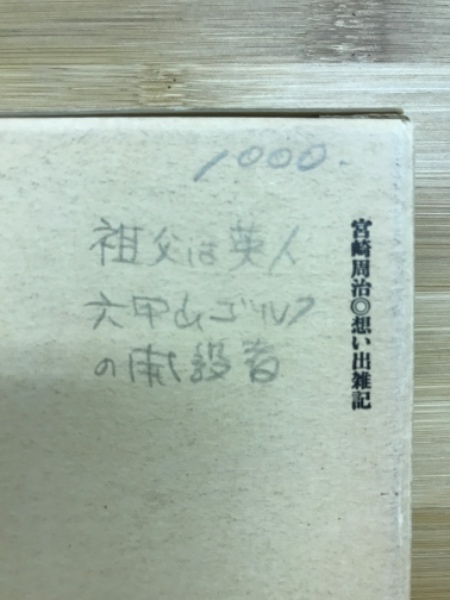 1000.
祖父は英人
六甲山ゴルフ
の開設者
宮崎周治◎想い出雑記